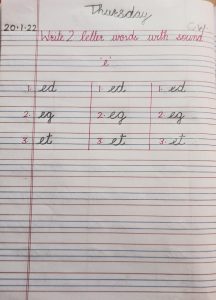 Thursday
20.1.22 C.W
Write 2 letter words with sound
'e'
1. ed 1. ed 1. ed
2. eg 2. eg 2. eg
3. et 3. et 3. et